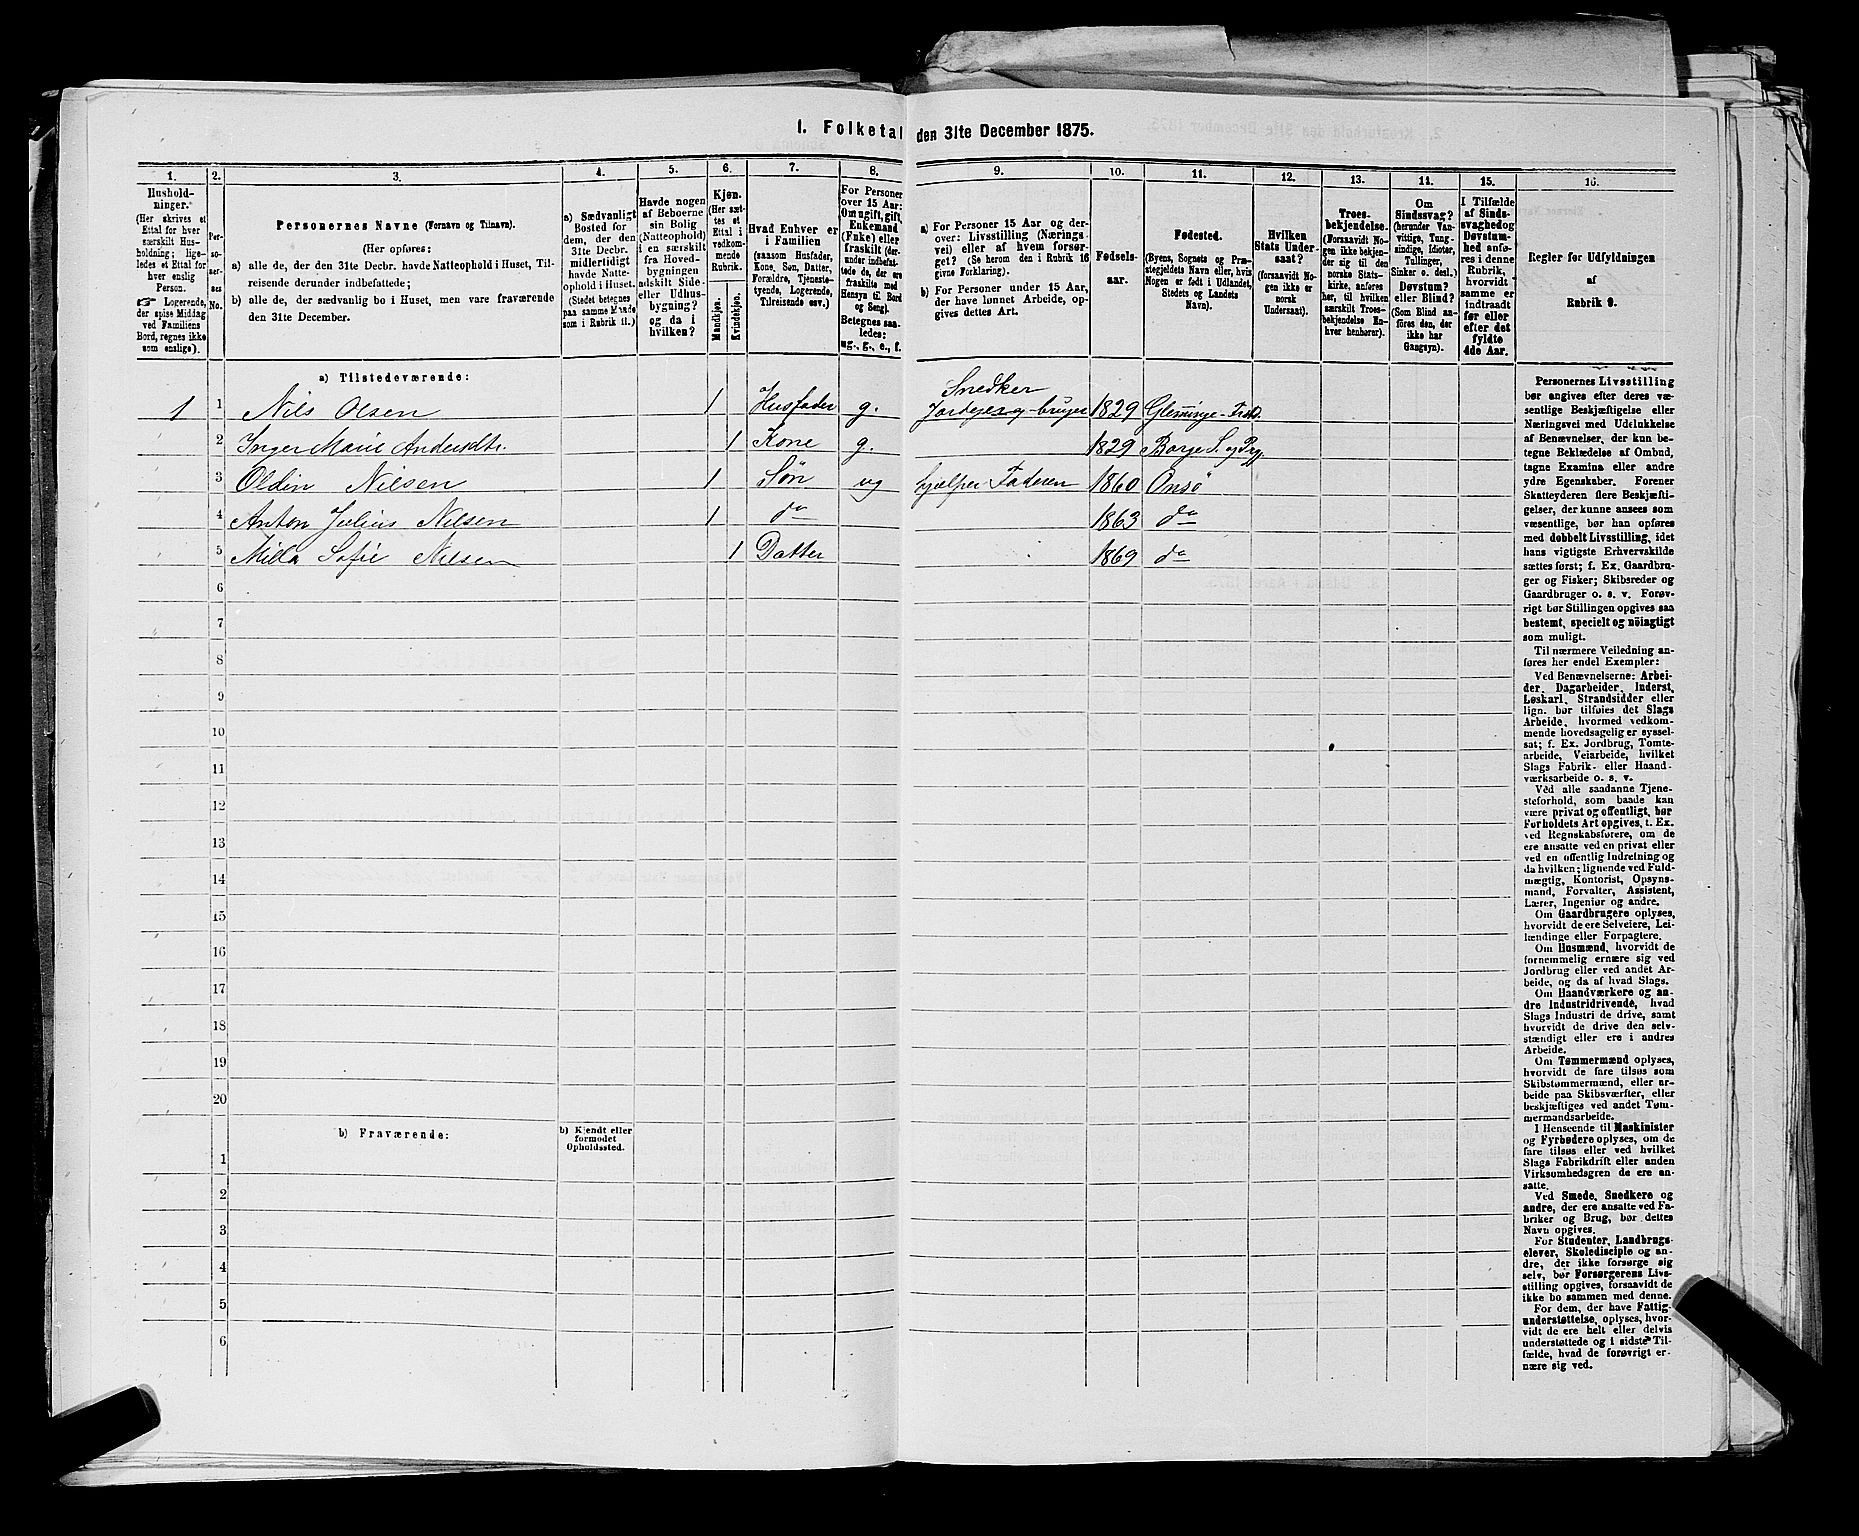 1. Folketal den 31te December 1875.
1. 2. 3. 4. 5. 6. 7. 8. 9. 10. 11. 12. 13. 14. 15. 16.
Hushold-
ninger.
(Her skrives et
Ettal for hver
særskilt Hus-
holdning; lige-
ledes et Ettal for
hver enslig
Person.
☞ Logerende,
der spise Middag
ved Familiens
Bord, regnes ikke
som enslige).
Per-
so-
ner-
nes
No.
Personernes Navne (Fornavn og Tilnavn).
(Her opføres:
a) alle de, der den 31te Decbr. havde Natteophold i Huset, Til-
reisende derunder indbefattede;
b) alle de, der sædvanlig bo i Huset, men vare fraværende
den 31te December.
a) Sædvanligt
Bosted for
dem, der den
31te Decbr.
midlertidigt
havde Natte-
ophold i Huset.
(Stedet betegnes
paa samme Maade
som i Rubrik 11.)
Havde nogen
af Beboerne
sin Bolig
(Natteophold)
i en særskilt
fra Hoved-
bygningen
adskilt Side-
eller Udhus-
bygning?
og da i
hvilken?
Kjøn.
(Her sæt-
tes et
Ettal i
vedkom-
mende
Rubrik.
Mandkjøn.
Kvindekjøn.
Hvad Enhver er
i Familien
(saasom Husfader,
Kone, Søn, Datter,
Forældre, Tjeneste-
tyende, Logerende,
Tilreisende osv.)
For Personer
over 15 Aar:
Om ugift, gift,
Enkemand
(Enke) eller
fraskilt (der-
under indbefat-
tede de, der ere
fraskilte med
Hensyn til Bord
og Seng).
Betegnes saa-
ledes:
ug., g., e., f.
a) For Personer 15 Aar og der-
over: Livsstilling (Nærings-
vei) eller af hvem forsør-
get? (Se herom den i Rubrik 16
givne Forklaring).
b) For Personer under 15 Aar,
der have lønnet Arbeide, op-
gives dettes Art.
Fødsels-
aar.
Fødested.
(Byens, Sognets og Præ-
stegjeldets Navn eller, hvis
Nogen er født i Udlandet,
Stedets og Landets
Navn).
Hvilken
Stats Under-
saat?
(forsaavidt No-
gen ikke er
norsk
Undersaat).
Troes-
bekjendelse.
(Forsaavidt No-
gen ikke bekjen-
der sig til den
norske Stats-
kirke, anføres
her, til hvilken
særskilt Troes-
bekjendelse En-
hver henhører).
Om
Sindssvag?
(herunder Van-
vittige, Tung-
sindige, Idioter,
Tullinger,
Sinker o. desl.)
Døvstum?
eller Blind?
(Som Blind an-
føres den, der
ikke har
Gangsyn).
I Tilfælde
af Sinds-
svaghed og
Døvstum-
hed anfø-
res i denne
Rubrik,
hvorvidt
samme er
indtraadt
før eller
efter det
fyldte
4de Aar.
Regler før Udfyldningen
af
Rubrik 9.
a) Tilstedeværende:
Snedker
1 1 Nils Olsen 1 Husfader g. Jordeier og -bruger 1829 Glemminge
2 Inger Marie Andersdtr. 1 Kone g. 1829 Borge S. og Prg.
3 Oldin Nilsen 1 Søn ug hjælper Faderen 1860 Onsø
4 Anton Julius Nilsen 1 do 1863 do
5 Milla Sofie Nilsen 1 Datter 1869 do
6
7
8
9
10
11
12
13
14
15
16
17
18
19
20
b) Fraværende:
b) Kjendt eller
formodet
Opholdssted.
1
2
3
4
5
6
Personernes Livsstilling
bør angives efter deres væ-
sentlige Beskjæftigelse eller
Næringsvei med Udelukkelse
af Benævnelser, der kun be-
tegne Beklædelse af Ombud,
tagne Examina eller andre
ydre Egenskaber. Forener
Skatteyderen flere Beskjæfti-
gelser, der kunne ansees som
væsentlige, bør han opføres
med dobbelt Livsstilling, idet
hans vigtigste Erhvervskilde
sættes først; f. Ex. Gaardbru-
ger og Fisker; Skibsreder og
Gaardbruger o. s. v. Forøv-
rigt bør Stillingen opgives saa
bestemt, specielt og nöiagtigt
som muligt.
Til nærmere Veiledning an-
føres her endel Exempler:
Ved Benævnelserne: Arbei-
der, Dagarbeider, Inderst,
Løskarl, Strandsidder eller
lign. bør tilføies det Slags
Arbeide, hvormed vedkom-
mende hovedsagelig er syssel-
sat; f. Ex. Jordbrug, Tomte-
arbeide, Veiarbeide, hvilket
Slags Fabrik- eller Haand-
værksarbeide o. s. v.
Ved alle saadanne Tjene-
steforhold, som baade kan
være privat og offentligt, bør
Forholdets Art opgives, t. Ex.
ved Regnskabsførere, om de
ere ansatte ved en privat eller
ved en offentlig Indretning og
da hvilken; lignende ved Fuld-
mægtig, Kontorist, Opsyns-
mand, Forvalter, Assistent,
Lærer, Ingeniør og andre.
Om Gaardbrugere oplyses,
hvorvidt de ere Selveiere, Lei-
lændinge eller Forpagtere.
Om Husmænd, hvorvidt de
fornemmelig ernære sig ved
Jordbrug eller ved andet Ar-
beide, og da af hvad Slags.
Om Haandværkere og an-
dre Industridrivende, hvad
Slags Industri de drive, samt
hvorvidt de drive den selv-
stændigt eller ere i andres
Arbeide.
Om Tømmermænd oplyses,
hvorvidt de fare tilsøs som
Skibstømmermænd, eller ar-
beide paa Skibsværfter, eller
beskjæftiges ved andet Tøm-
mermandsarbeide.
I Henseende til Maskinister
og Fyrbødere oplyses, om de
fare tilsøs eller ved hvilket
Slags Fabrikdrift eller anden
Virksomhedsgren de ere an-
satte.
Ved Smede, Snedkere og
andre, der ere ansatte ved Fa-
briker og Brug, bør dettes
Navn opgives.
For Studenter, Landbrugs-
elever, Skoledisciple og an-
dre, der ikke forsørge sig
selv, bør Forsørgerens Livs-
stilling opgives, forsaavidt de
ikke bo sammen med denne.
For dem, der have Fattig-
understøttelse, oplyses, hvor-
vidt de ere helt eller delvis
understøttede og i sidste Til-
fælde, hvad de forøvrigt er-
nære sig ved.